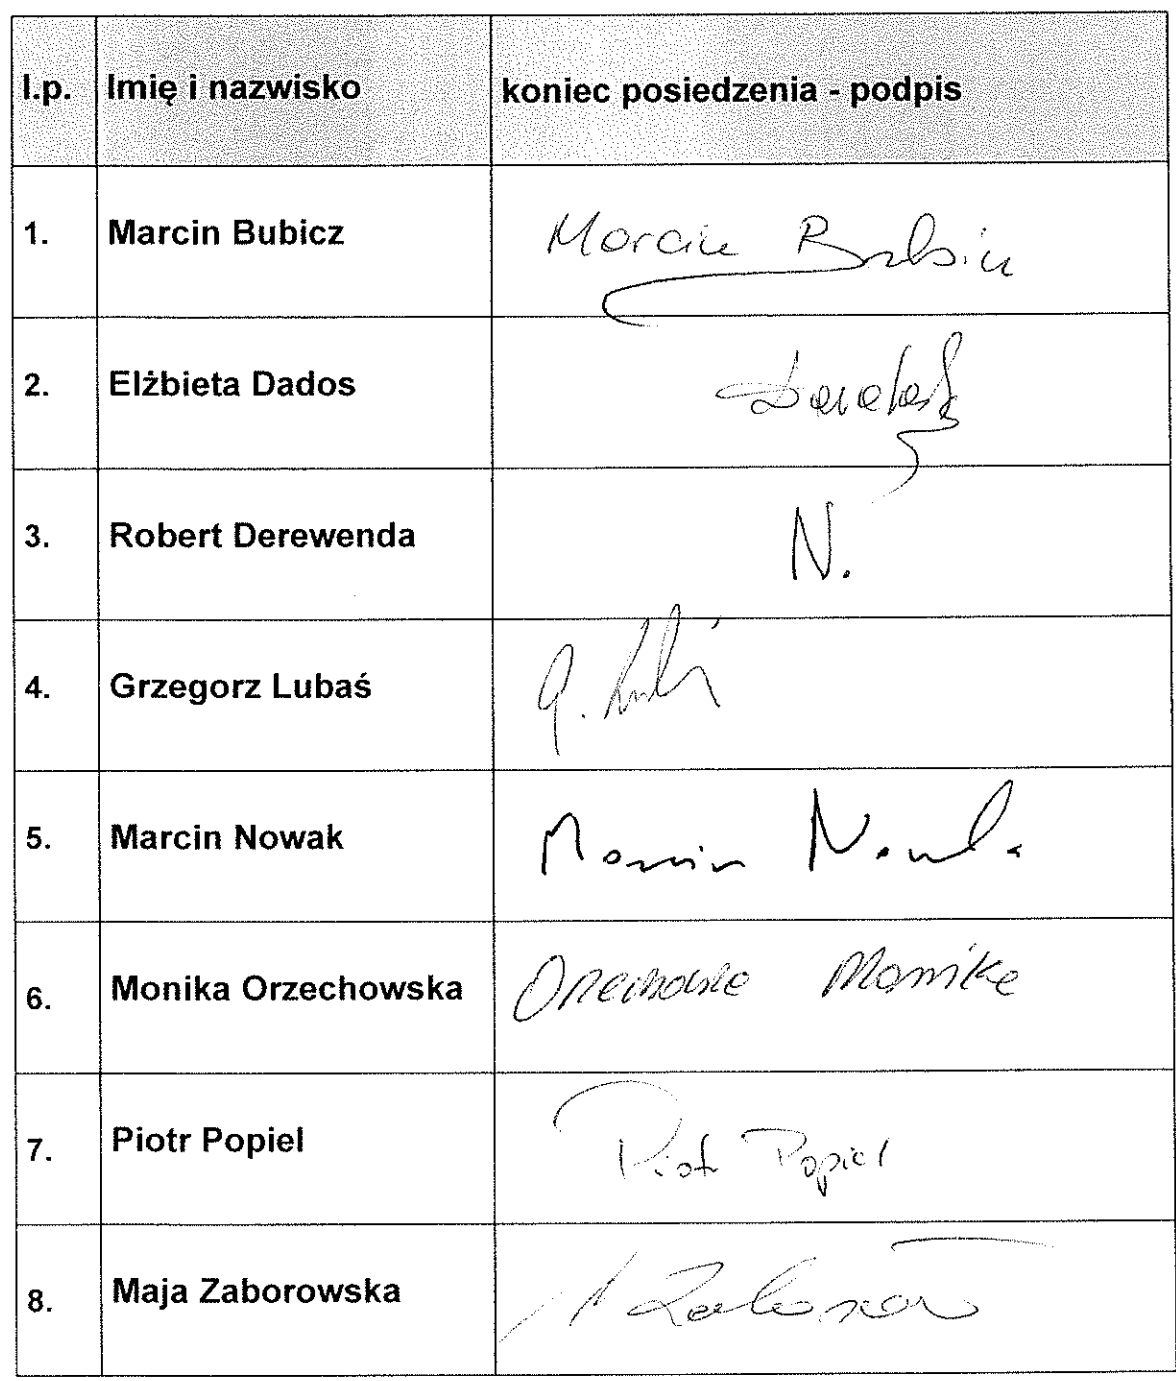 l.p. Imię i nazwisko koniec posiedzenia - podpis
1. Marcin Bubicz Marcin Bubicz
2. Elżbieta Dados
3. Robert Derewenda N.
4. Grzegorz Lubaś G. Lubaś
5. Marcin Nowak Marcin Nowak
6. Monika Orzechowska Orzechowska Monika
7. Piotr Popiel Piotr Popiel
8. Maja Zaborowska